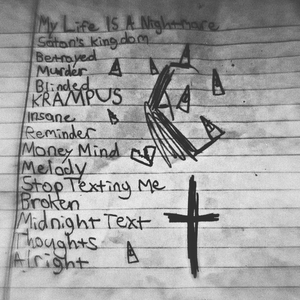 My Life Is A Nightmare
Satan's kingdom
Betrayed
Murder
Blinded
KRAMPUS
Insane
Reminder
Money Mind
Melody
Stop Texting Me
Broken
Midnight Text
Thoughts
Alright